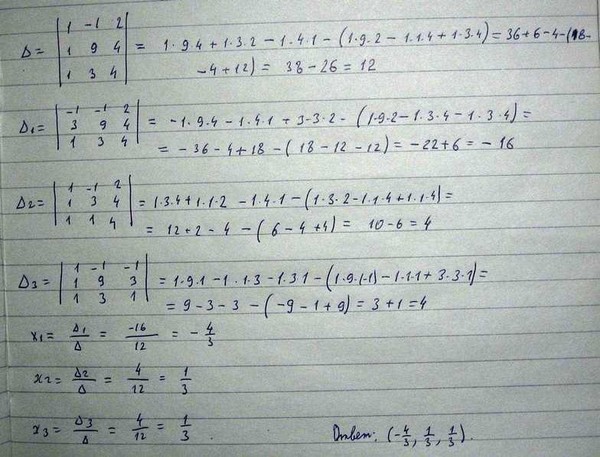 Δ = | 1 -1 2 | = 1·9·4+1·3·2-1·4·1-(1·9·2-1·1·4+1·3·4)=36+6-4-(18-
| 1 9 4 |
| 1 3 4 | -4+12) = 38-26=12
Δ1= | -1 -1 2 |
| 3 9 4 | = -1·9·4-1·4·1+3·3·2-(1·9·2-1·3·4-1·3·4)=
| 1 3 4 | = -36-4+18-(18-12-12)=-22+6=-16
Δ2= | 1 -1 2 |
| 1 3 4 | =1·3·4+1·1·2-1·4·1-(1·3·2-1·1·4+1·1·4)=
| 1 1 4 | = 12+2-4-(6-4+4)= 10-6=4
Δ3= | 1 -1 -1 |
| 1 9 3 | =1·9·1-1·1·3-1·3·1-(1·9·(-1)-1·1·1+3·3·1)=
| 1 3 1 | =9-3-3-(-9-1+9)=3+1=4
x1= Δ1/Δ = -16/12 = -4/3
x2= Δ2/Δ = 4/12 = 1/3
x3= Δ3/Δ = 4/12 = 1/3. Ответ: (-4/3, 1/3, 1/3).